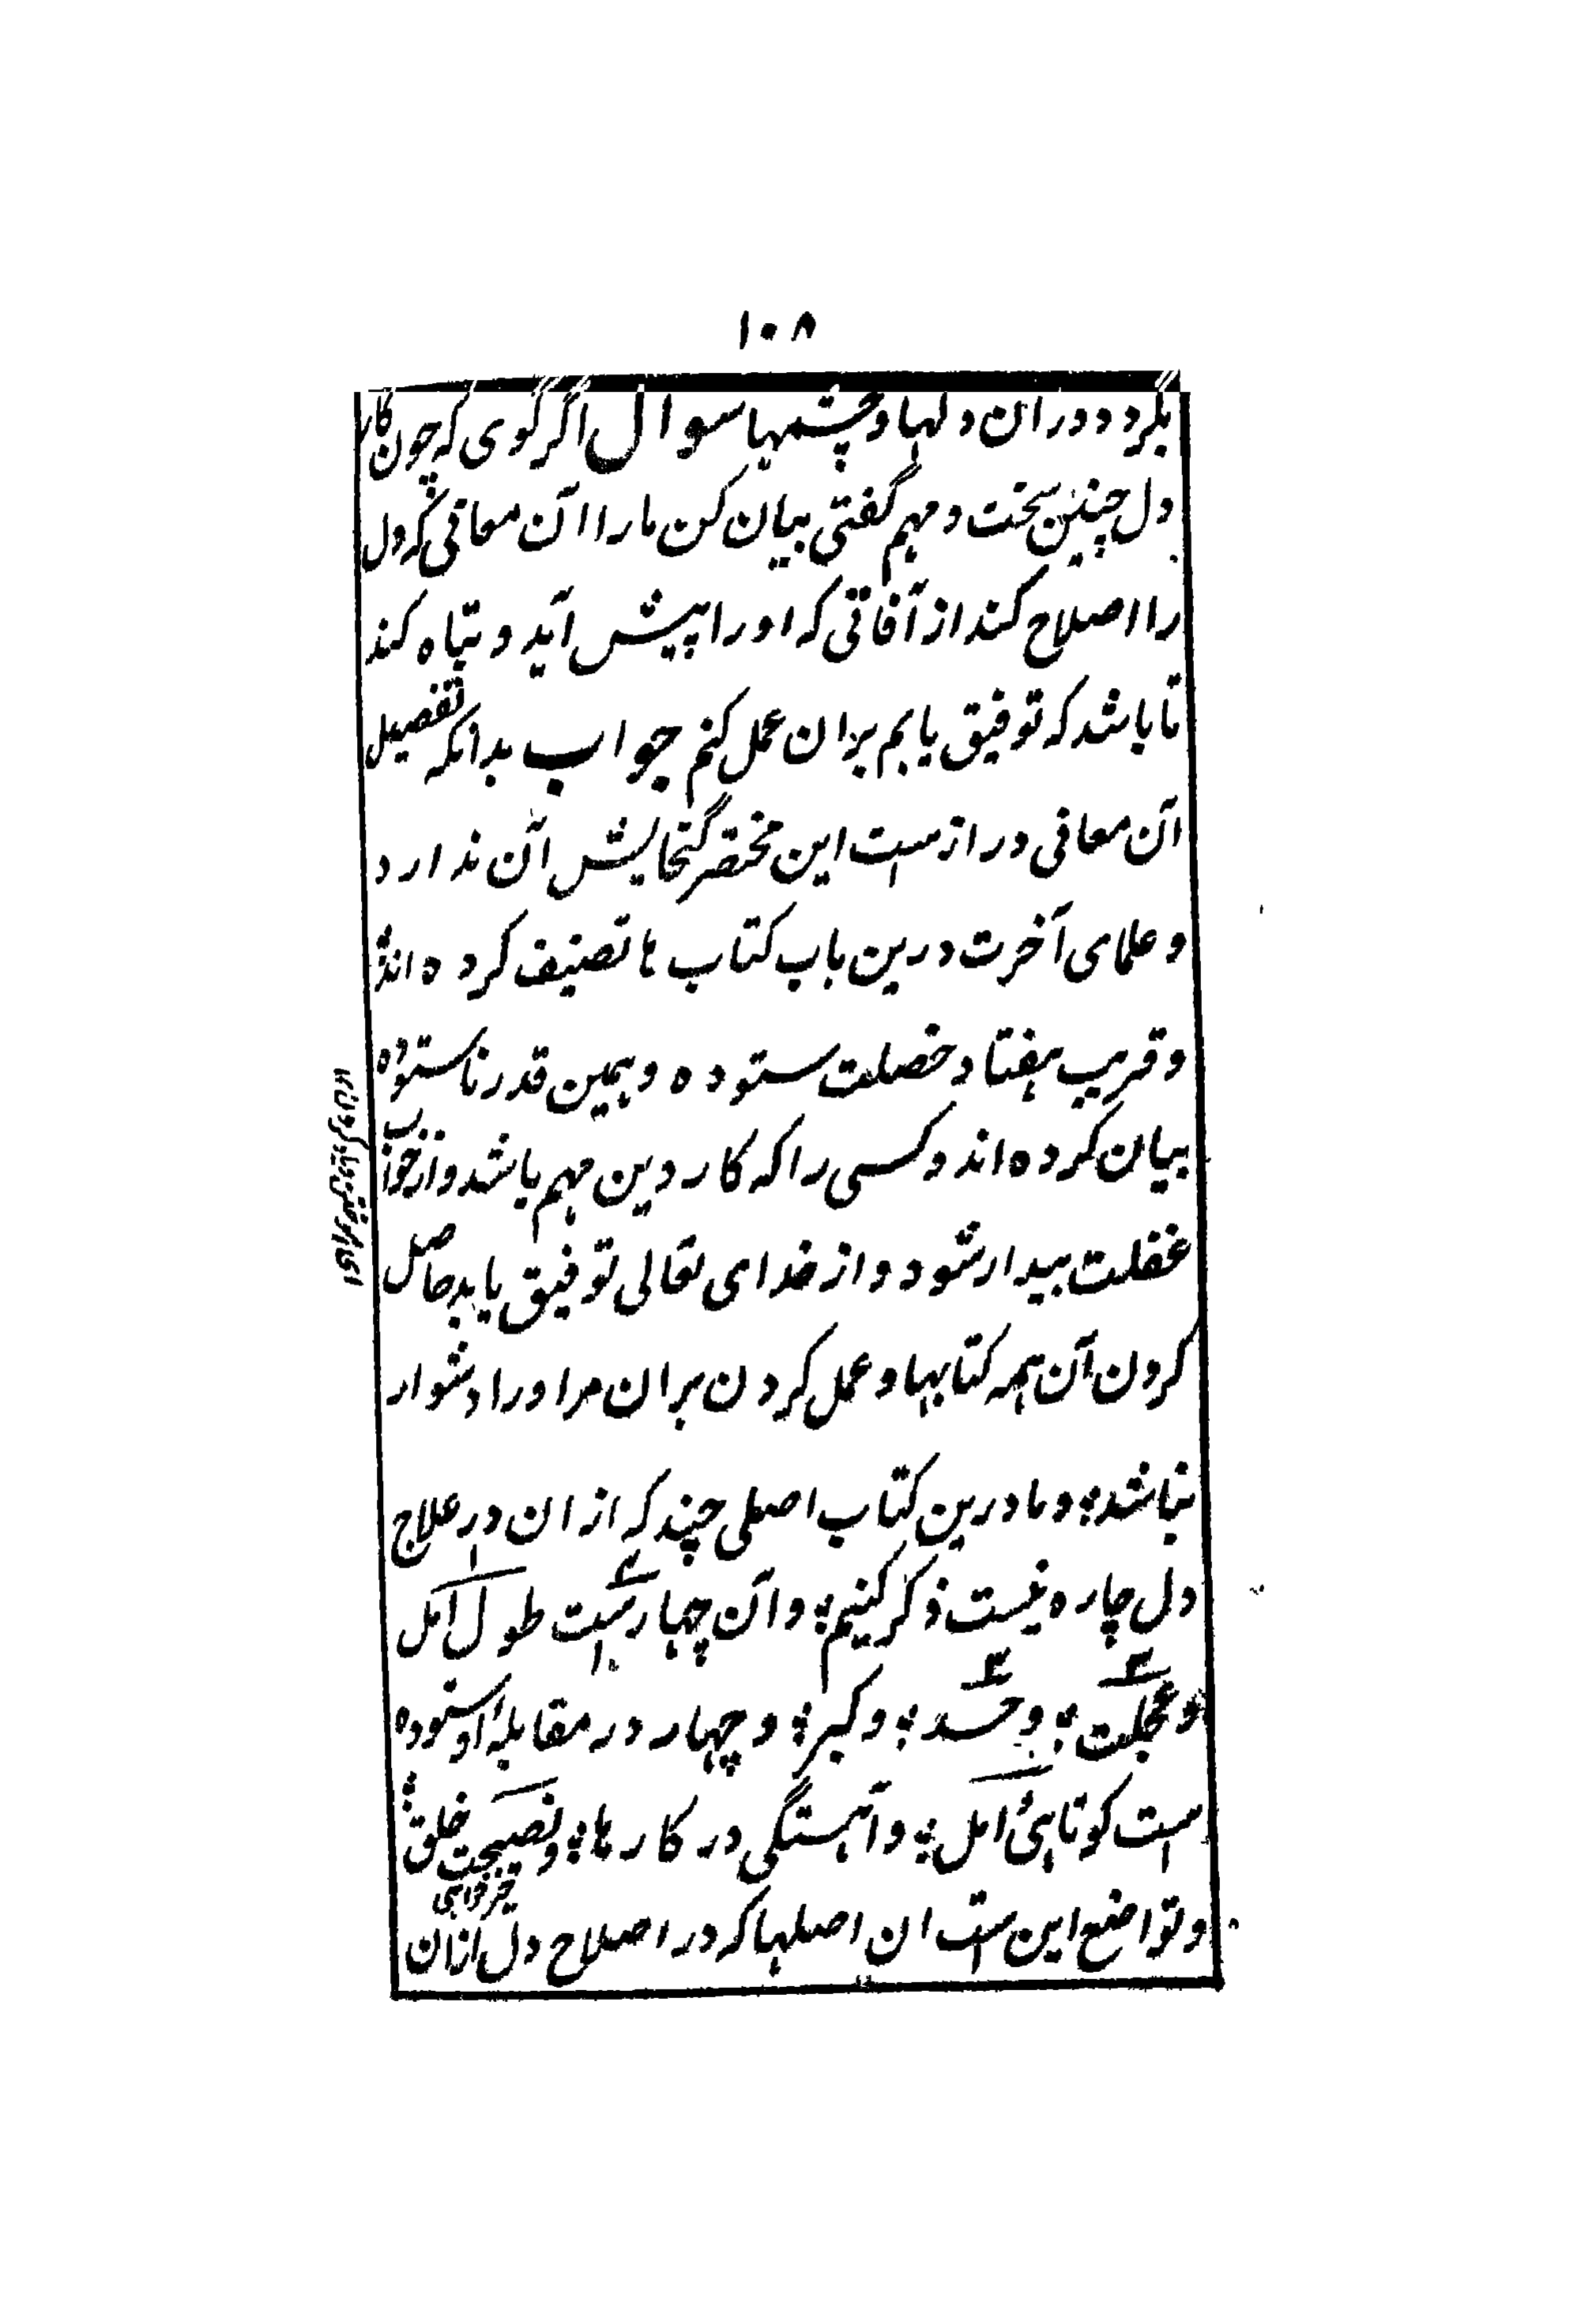 ۱۰۸
بگردد دران دلها و چشمها سوال اگر گوی که چون کار
دل چنین سخت و مهم گفتی بیان کن مارا آن معانی که دل
را اصلاح کند از آفاتی که اورا پیش آید و تباه کند
تا باشد که توفیق یابم بران عمل کنم جواب بدانکه تفصیل
آن معانی درازست این مختصر گنجایش آن ندارد
و علمای آخرت درین باب کتاب ها تصنیف کرده اند
و قریب هفتاد خصلت ستوده و همین قدر ناستوده
بیان کرده اند و کسی را که کار دین مهم باشد و از خواب
غفلت بیدار شود و از خدای تعالی توفیق یابد حاصل
کردن آن همه کتابها و عمل کردن بران مر اورا دشوار
نباشد؛ و ما درین کتاب اصلی چند که ازان در علاج
دل چاره نیست ذکر کنیم؛ و آن چهارست طول امل
و عجلت؛ و حسد؛ و کبر؛ و چهار در مقابلۀ او ستوده
است کوتاهیٔ امل؛ و آهستگی در کارها؛ و نصیحت خلق؛
خیرخواهی
و تواضع این ست ان اصلها که در اصلاح دل ازان